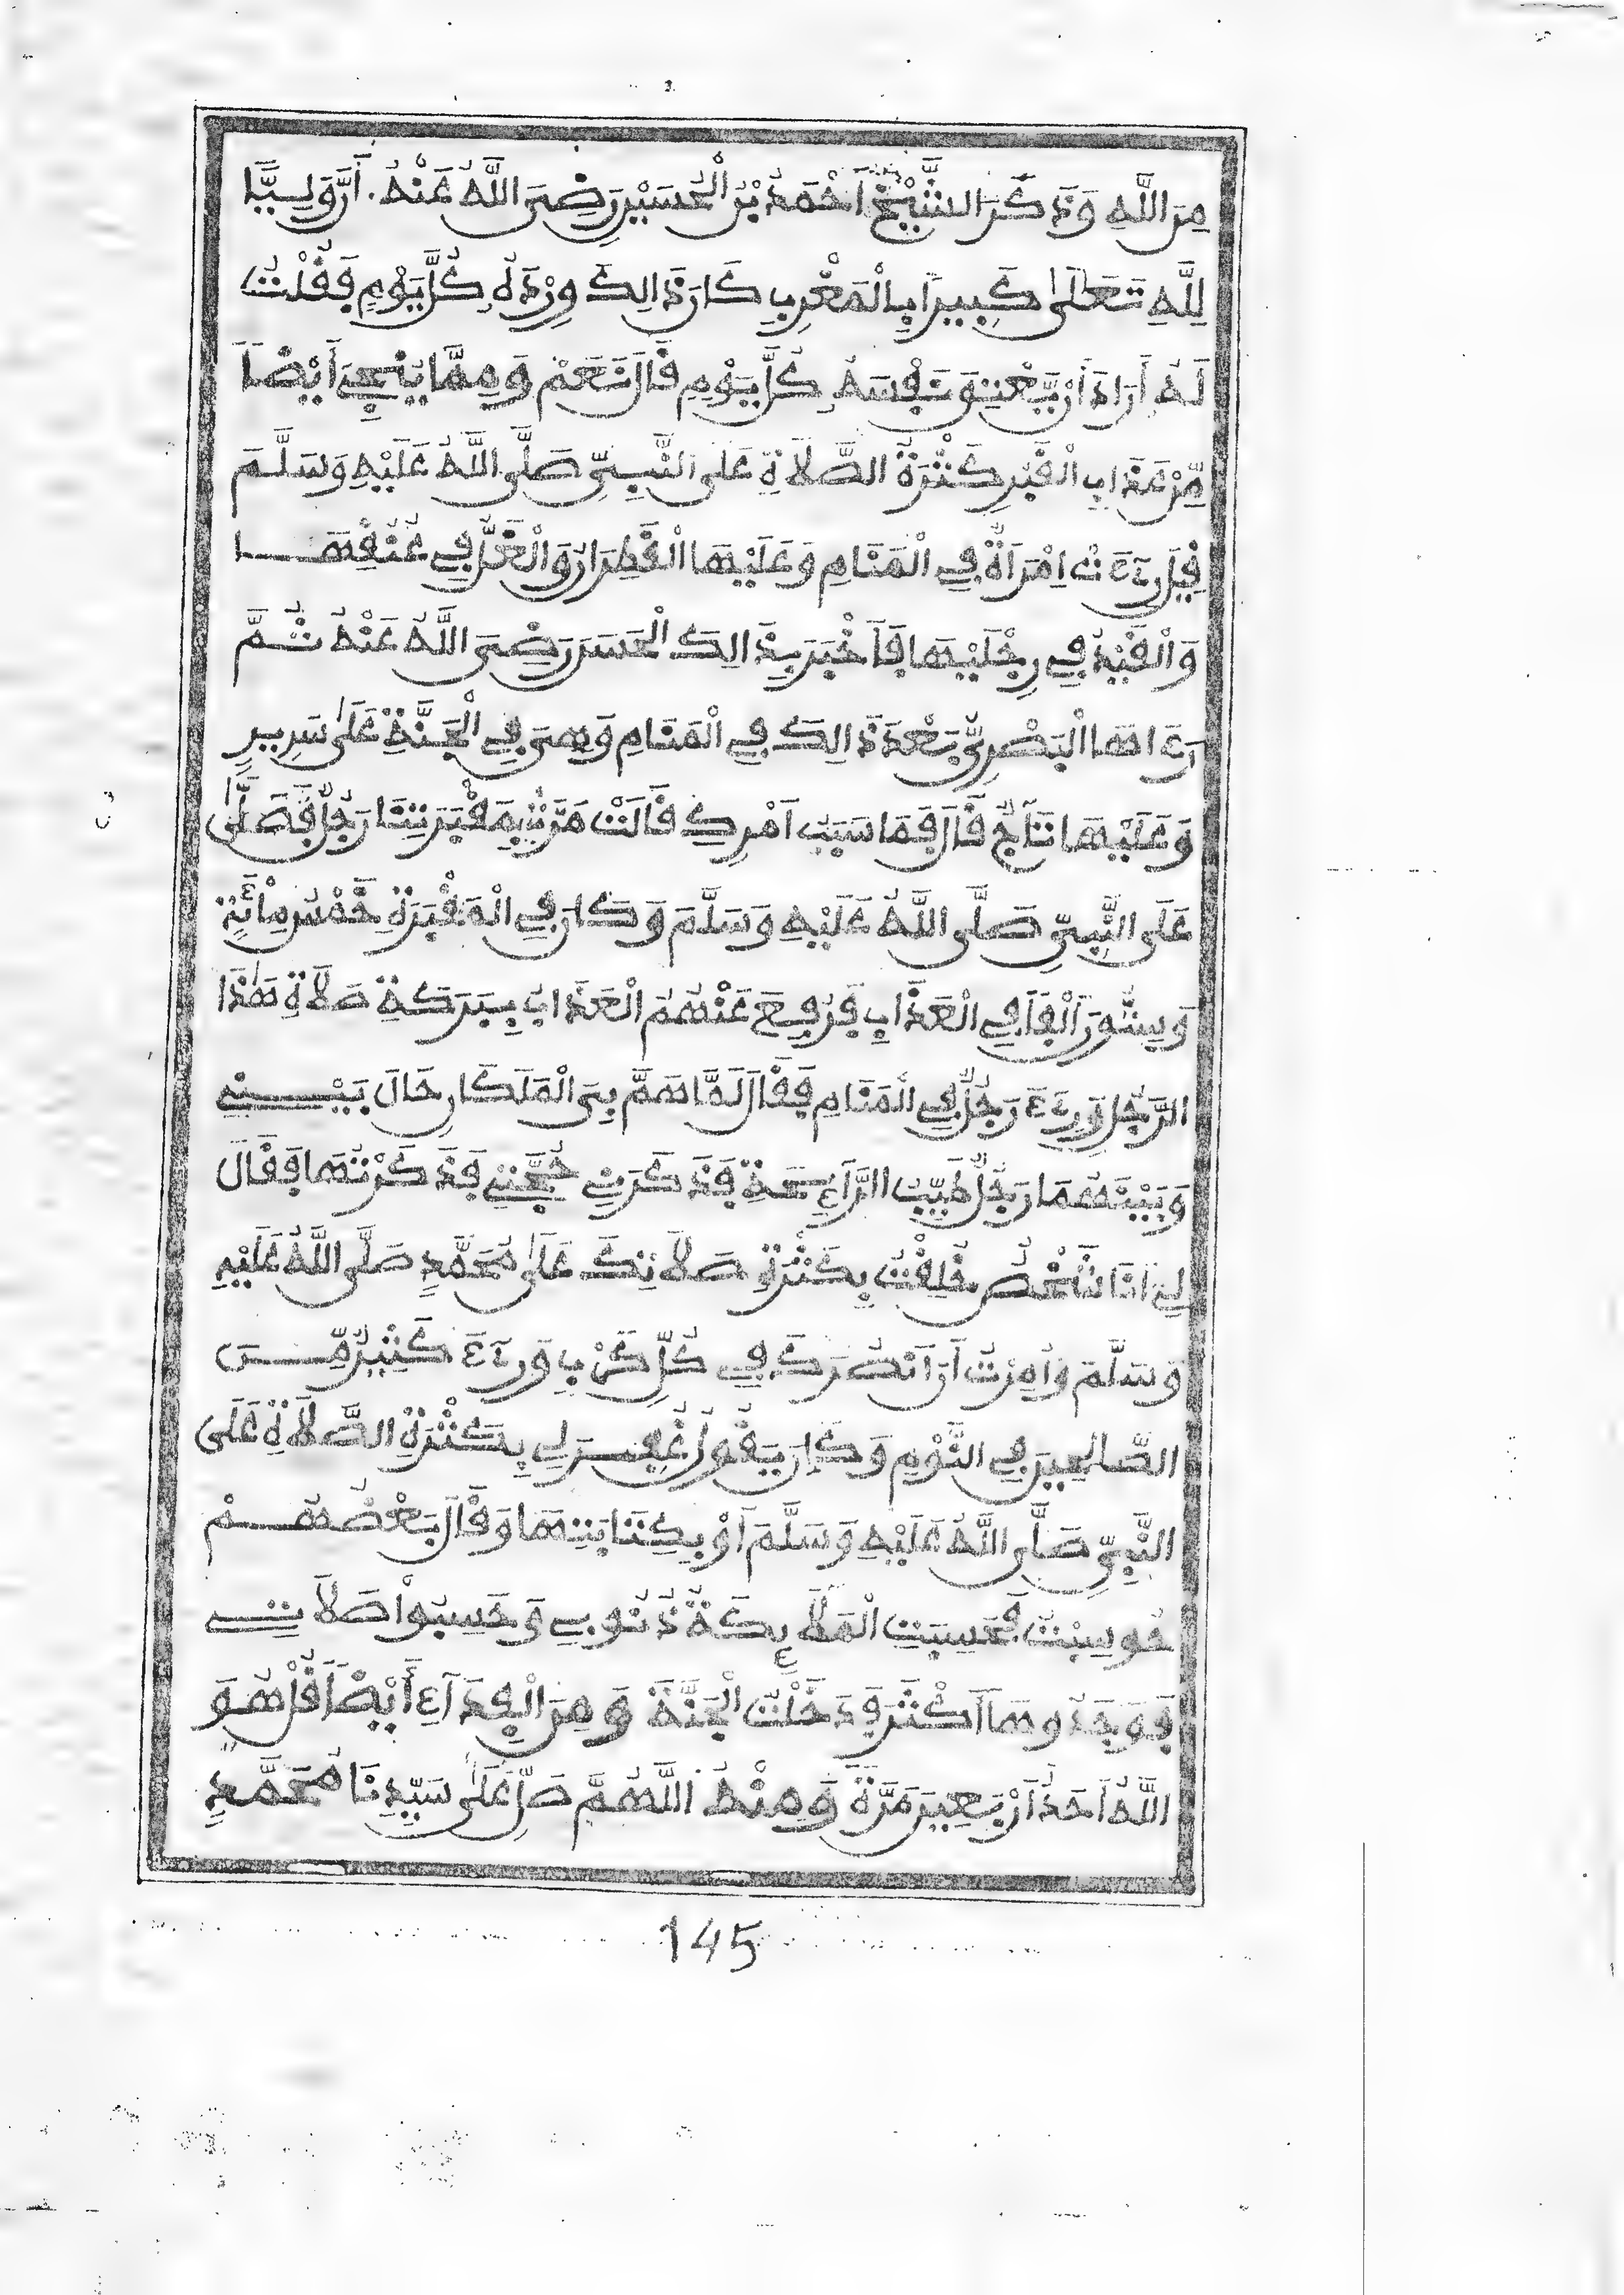 مِنَ اللَّهِ وَذَكَرَ الشَّيْخُ أَحْمَدُ بْنُ الْحُسَيْنِ رَضِيَ اللَّهُ عَنْهُ. أَنَّ وَلِيًّا
لِلَّهِ تَعَالَىٰ كَبِيرًا بِالْمَغْرِبِ كَانَ ذَالِكَ وِرْدَهُ كُلَّ يَوْمٍ فَقُلْتُ
لَهُ أَرَادَ أَنْ يُّعْتِقَ نَفْسَهُ كُلَّ يَوْمٍ قَالَ نَعَمْ وَمِمَّا يُنْجِي أَيْضًا
مِّنْ عَذَابِ الْقَبْرِ كَثْرَةُ الصَّلَاةِ عَلَى النَّبِيِّ صَلَّى اللَّهُ عَلَيْهِ وَسَلَّمَ
قِيلَ رُءِيَتْ اِمْرَأَةٌ فِي الْمَنَامِ وَعَلَيْهَا الْقَطِرَانُ وَالْغُلُّ فِي عُنُقِهَا
وَالْقَيْدُ فِي رِجْلَيْهَا فَأَخْبَرَ بِذَالِكَ الْحَسَنَ رَضِيَ اللَّهُ عَنْهُ ثُمَّ
رَءَاهَا الْبَصْرِيُّ بَعْدَ ذَالِكَ فِي الْمَنَامِ وَهِيَ فِي الْجَنَّةِ عَلَىٰ سَرِيرٍ
وَعَلَيْهَا تَاجٌ قَالَ فَمَا سَبَبُ أَمْرِكِ قَالَتْ مَرَّ بِمَقْبَرَتِنَا رَجُلٌ فَصَلَّىٰ
عَلَى النَّبِيِّ صَلَّى اللَّهُ عَلَيْهِ وَسَلَّمَ وَكَانَ فِي الْمَقْبَرَةِ خَمْسُ مِائَةٍ
وَسِتُّونَ أَلْفًا فِي الْعَذَابِ فَرُفِعَ عَنْهُمُ الْعَذَابُ بِبَرَكَةِ صَلَاةِ هَٰذَا
الرَّجُلِ وَرُءِيَ رَجُلٌ فِي الْمَنَامِ فَقَالَ لَمَّا هَمَّ بِيَ الْمَلَكَانِ حَالَ بَيْنِي
وَبَيْنَهُمَا رَجُلٌ طَيِّبُ الرَّائِحَةِ فَذَكَّرَنِي حُجَّتِي فَذَكَرْتُهَا فَقَالَ
لِي أَنَا شَخْصٌ خُلِقْتُ بِكَثْرَةِ صَلَاتِكَ عَلَىٰ مُحَمَّدٍ صَلَّى اللَّهُ عَلَيْهِ
وَسَلَّمَ وَأُمِرْتُ أَنْ أَنْصُرَكَ فِي كُلِّ كَرْبٍ وَرُءِيَ كَثِيرٌ مِّنَ
الصَّالِحِينَ فِي النَّوْمِ وَكَانَ يَقُولُ غُفِرَ لِي بِكَثْرَةِ الصَّلَاةِ عَلَى
النَّبِيِّ صَلَّى اللَّهُ عَلَيْهِ وَسَلَّمَ أَوْ بِكِتَابَتِهَا وَقَالَ بَعْضُهُمْ
حُوسِبْتُ فَحَسِبَتِ الْمَلَائِكَةُ ذُنُوبِي وَحَسِبُوا صَلَاتِي
فَوَجَدُوهَا أَكْثَرَ فَدَخَلْتُ الْجَنَّةَ وَمِنَ الْفِدَاءِ أَيْضًا قُلْ هُوَ
اللَّهُ أَحَدٌ أَرْبَعِينَ مَرَّةً وَمِنْهُ اللَّهُمَّ صَلِّ عَلَىٰ سَيِّدِنَا مُحَمَّدٍ
145